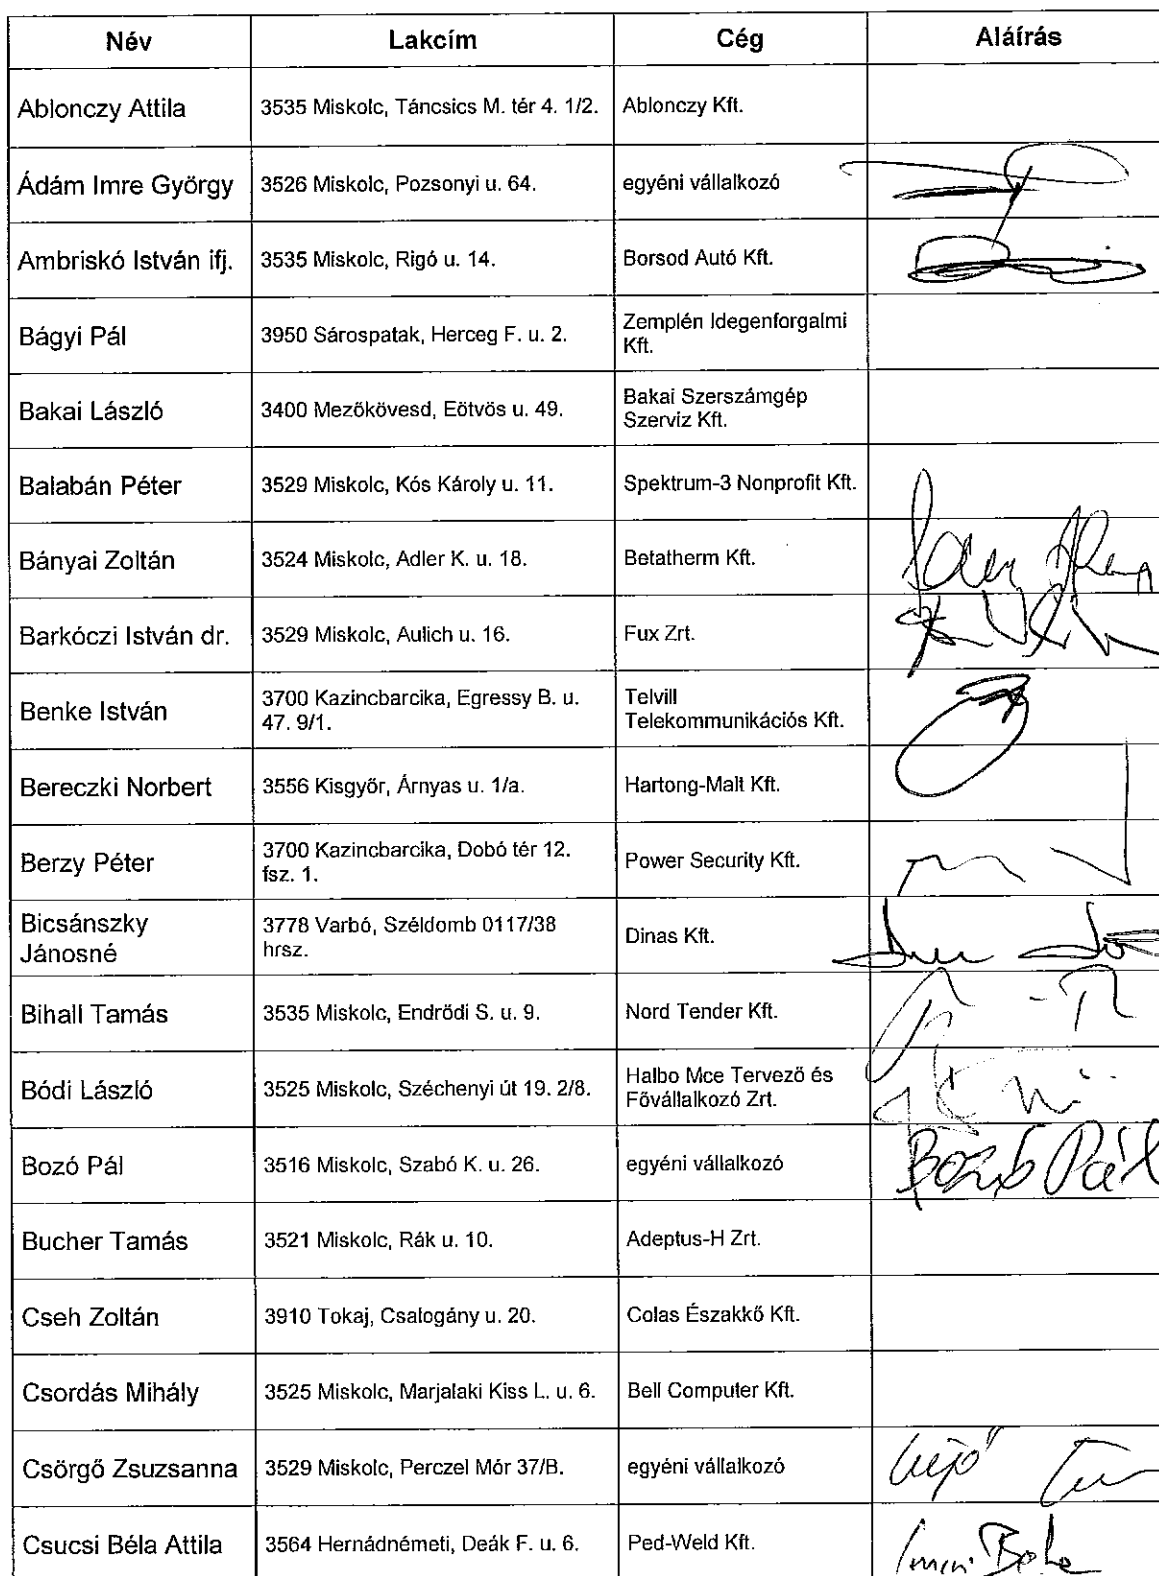 Név Lakcím Cég Aláírás
Ablonczy Attila 3535 Miskolc, Táncsics M. tér 4. 1/2. Ablonczy Kft.
Ádám Imre György 3526 Miskolc, Pozsonyi u. 64. egyéni vállalkozó
Ambriskó István ifj. 3535 Miskolc, Rigó u. 14. Borsod Autó Kft.
Bágyi Pál 3950 Sárospatak, Herceg F. u. 2. Zemplén Idegenforgalmi
Kft.
Bakai László 3400 Mezőkövesd, Eötvös u. 49. Bakai Szerszámgép
Szerviz Kft.
Balabán Péter 3529 Miskolc, Kós Károly u. 11. Spektrum-3 Nonprofit Kft.
Bányai Zoltán 3524 Miskolc, Adler K. u. 18. Betatherm Kft.
Barkóczi István dr. 3529 Miskolc, Aulich u. 16. Fux Zrt.
Benke István 3700 Kazincbarcika, Egressy B. u. Telvill
47. 9/1. Telekommunikációs Kft.
Bereczki Norbert 3556 Kisgyőr, Árnyas u. 1/a. Hartong-Malt Kft.
Berzy Péter 3700 Kazincbarcika, Dobó tér 12. Power Security Kft.
fsz. 1.
Bicsánszky 3778 Varbó, Széldomb 0117/38 Dinas Kft.
Jánosné hrsz.
Bihall Tamás 3535 Miskolc, Endrődi S. u. 9. Nord Tender Kft.
Bódi László 3525 Miskolc, Széchenyi út 19. 2/8. Halbo Mce Tervező és
Fővállalkozó Zrt.
Bozó Pál 3516 Miskolc, Szabó K. u. 26. egyéni vállalkozó Bozó Pál
Bucher Tamás 3521 Miskolc, Rák u. 10. Adeptus-H Zrt.
Cseh Zoltán 3910 Tokaj, Csalogány u. 20. Colas Északkő Kft.
Csordás Mihály 3525 Miskolc, Marjalaki Kiss L. u. 6. Bell Computer Kft.
Csörgő Zsuzsanna 3529 Miskolc, Perczel Mór 37/B. egyéni vállalkozó
Csucsi Béla Attila 3564 Hernádnémeti, Deák F. u. 6. Ped-Weld Kft.